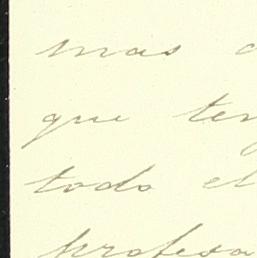 mas
que ten
todo el
profeso